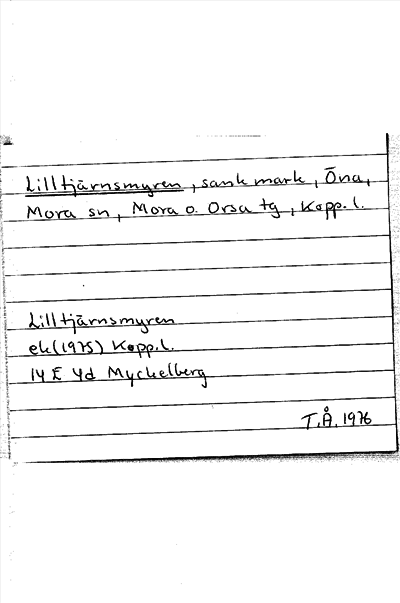 Lilltjärnsmyren, sank mark, Öna,
Mora sn, Mora o. Orsa tg, Kopp. l.
Lilltjärnsmyren
ek (1975) Kopp. l.
14 E 4d Myckelberg
T.Å. 1976